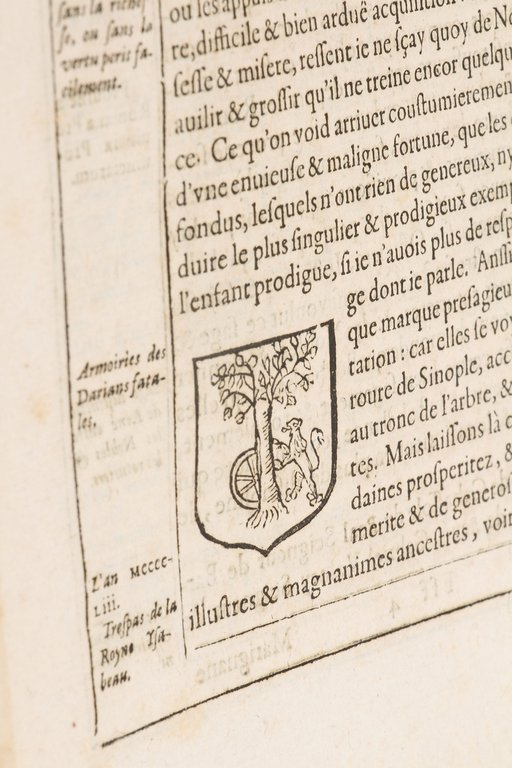 sans la riches
se, ou sans la
vertu perit fa-
cilement.
ou les appuis
re, difficile & bien arduë acquisition
sesse & misere, ressent ie ne sçay quoy de
auilir & grossir qu'il ne treine encor quelqu
ce. Ce qu'on void arriuer coustumierement
d'vne enuieuse & maligne fortune, que les
fondus, lesquels n'ont rien de genereux, ny
duire le plus singulier & prodigieux exem
l'enfant prodigue, si ie n'auois plus de resp
ge dont ie parle. Ansi
que marque presagieu
tation : car elles se vo
roure de Sinople, acc
au tronc de l'arbre, &
tes. Mais laissons là
daines prosperitez, &
merite & de generos
illustres & magnanimes ancestres, voir
Armoiries des
Darians fata-
les.
L'an MCCCC-
LIII.
Trespas de la
Royne Isa-
beau.